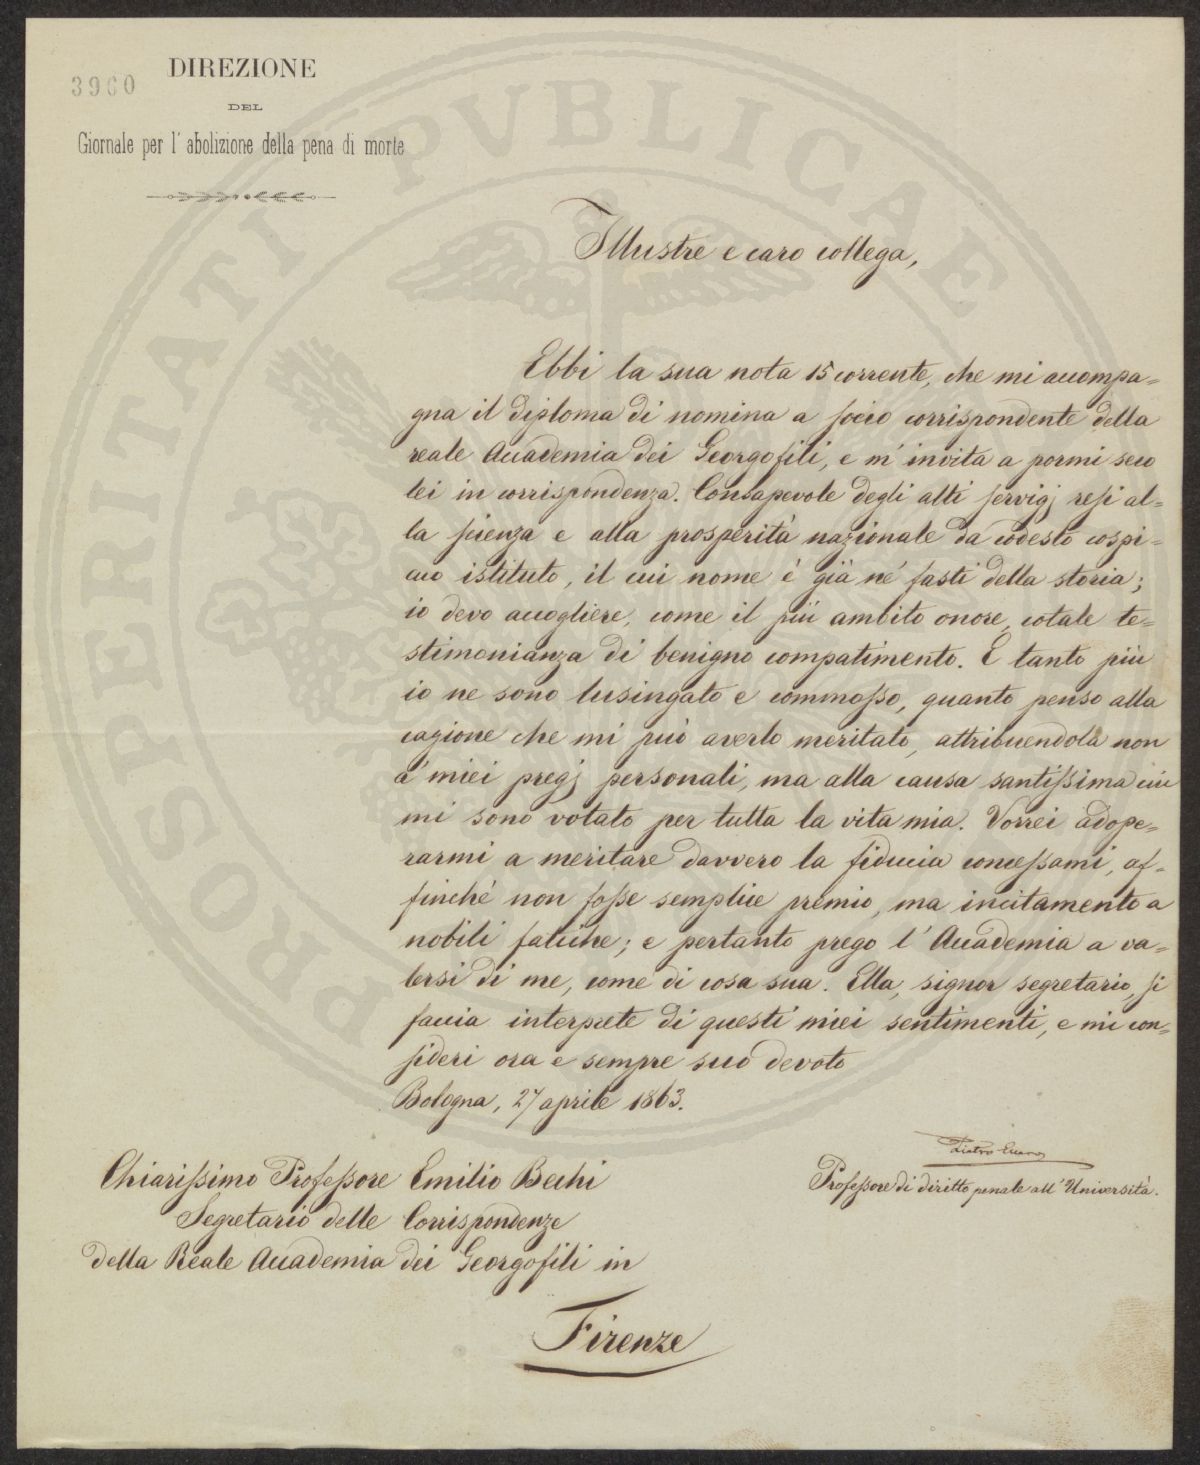 3960
DIREZIONE
DEL
Giornale per l' abolizione della pena di morte
PROSPERITATI PVBLICAE
Illustre e caro collega,
Ebbi la sua nota 15 corrente, che mi accompa=
gna il diploma di nomina a socio corrispondente della
reale Accademia dei Georgofili, e m' invita a pormi seco
lei in corrispondenza. Consapevole degli alti servigj resi al=
la scienza e alla prosperità nazionale da codesto cospi=
cuo istituto, il cui nome è già ne' fasti della storia;
io devo accogliere, come il più ambito onore, cotale te=
stimonianza di benigno compatimento. E tanto più
io ne sono lusingato e commosso, quanto penso alla
cagione che mi può averlo meritato, attribuendola non
a' miei pregj personali, ma alla causa santissima cui
mi sono votato per tutta la vita mia. Vorrei adope=
rarmi a meritare davvero la fiducia concessami, af=
finchè non fosse semplice premio, ma incitamento a
nobili fatiche; e pertanto prego l' Accademia a va=
lersi di me, come di cosa sua. Ella, signor segretario, si
faccia interprete di questi miei sentimenti, e mi con=
sideri ora e sempre suo devoto
Bologna, 27 aprile 1863.
Pietro Ellero
Professore di diritto penale all' Università.
Chiarissimo Professore Emilio Bechi
Segretario delle Corrispondenze
della Reale Accademia dei Georgofili in
Firenze